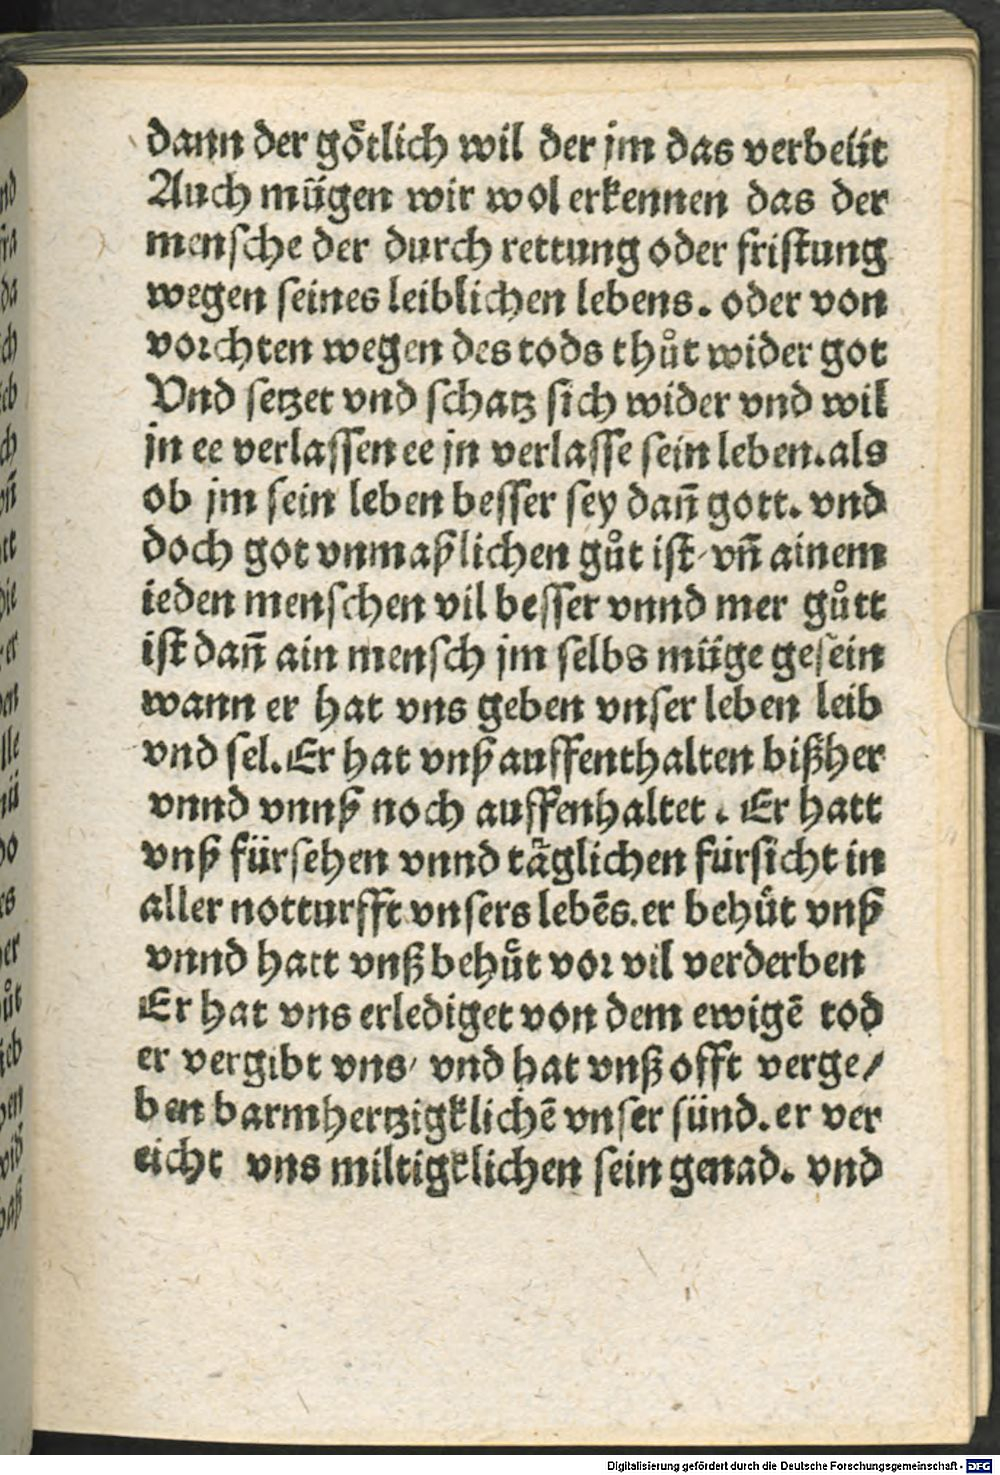 dann der gotlich wil der jm das verbeut
Auch mügen wir wol erkennen das der
mensche der durch rettung oder fristung
wegen seines leiblichen lebens. oder von
vorchten wegen des tods thůt wider got
Vnd setzet vnd schatz sich wider vnd wil
jn ee verlassen ee jn verlasse sein leben. als
ob jm sein leben besser sey dañ gott. vnd
doch got vnmaßlichen gůt ist/ vñ ainem
ieden menschen vil besser vnnd mer gůtt
ist dañ ain mensch jm selbs müge gesein
wann er hat vns geben vnser leben leib
vnd sel. Er hat vnß auffenthalten bißher
vnnd vnnß noch auffenhaltet. Er hatt
vnß fürsehen vnnd täglichen fürsicht in
aller notturfft vnsers lebēs. er behůt vnß
vnnd hatt vnß behůt vor vil verderben
Er hat vns erlediget von dem ewigē tod
er vergibt vns/ vnd hat vnß offt verge/
ben barmhertzigklichē vnser sünd. er ver
eicht vns miltigklichen sein genad. vnd
Digitalisierung gefördert durch die Deutsche Forschungsgemeinschaft - DFG